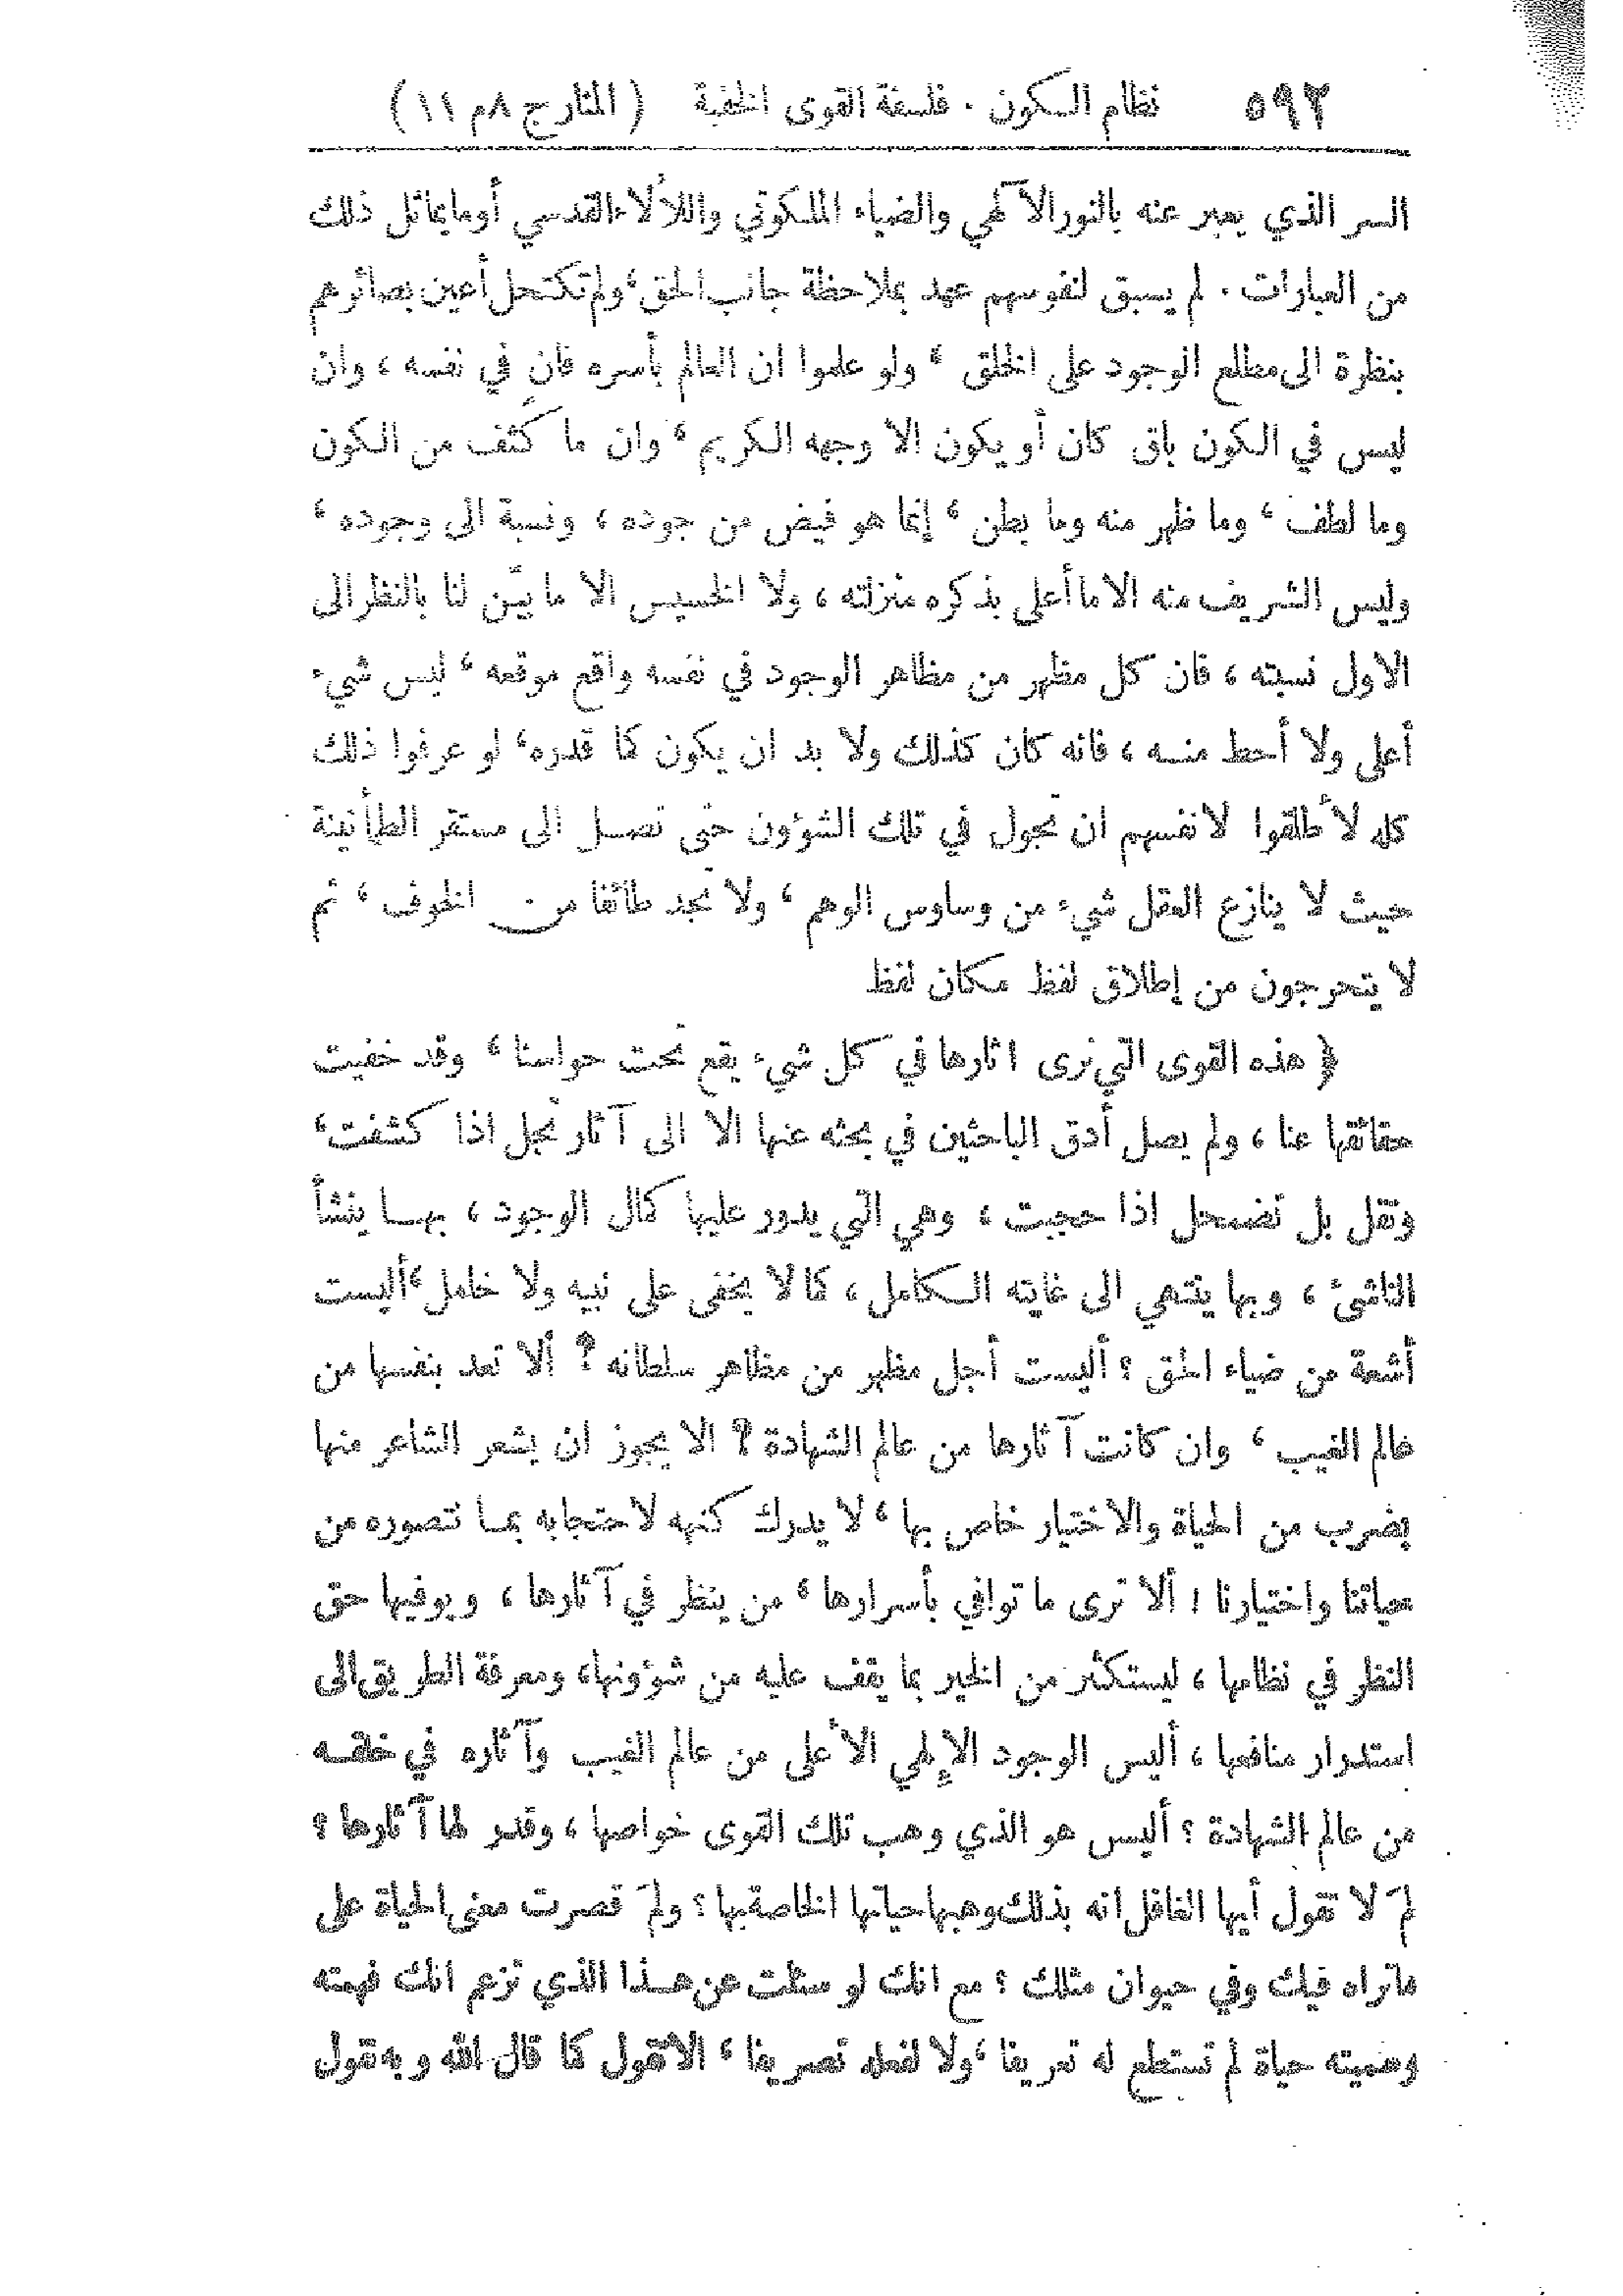 ٥٩٢ نظام الكون . فلسفة القوى الخفية ( المنار ج ٨ م ١١ )
السر الذي يعبر عنه بالنور الآلهي والضياء الملكوتي واللألاء القدسي أو مايماثل ذلك
من العبارات . لم يسبق لنفوسهم عهد بملاحظة جانب الحق ، ولم تكتحل أعين بصائرهم
بنظرة الى مطلع الوجود على الخلق ، ولو علموا ان العالم بأسره فانٍ في نفسه ، وان
ليس في الكون باق كان أو يكون الا وجهه الكريم ، وان ما كثف من الكون
وما لطف ، وما ظهر منه وما بطن ، إنما هو فيض من جوده ، ونسبة الى وجوده ،
وليس الشريف منه الا ما أعلى بذكره منزلته ، ولا الخسيس الا ما بيّن لنا بالنظر الى
الاول نسبته ، فان كل مظهر من مظاهر الوجود في نفسه واقع موقعه ، ليس شيء
أعلى ولا أحط منه ، فانه كان كذلك ولا بد ان يكون كما قدره ، لو عرفوا ذلك
كله لأطلقوا لانفسهم ان تجول في تلك الشؤون حتى تصل الى مستقر الطمأنينة
حيث لا ينازع العقل شيء من وساوس الوهم ، ولا تجد طائفا من الخوف ، ثم
لا يتحرجون من إطلاق لفظ مكان لفظ
﴿ هذه القوى التي نرى اثارها في كل شيء يقع تحت حواسنا ، وقد خفيت
حقائقها عنا ، ولم يصل أدق الباحثين في بحثه عنها الا الى آثار تجل اذا كشفت ،
وتقل بل تضمحل اذا حجبت ، وهي التي يدور عليها كمال الوجود ، بها ينشأ
الناشئ ، وبها ينتهي الى غايته الكامل ، كما لا يخفى على نبيه ولا خامل ، أليست
أشعة من ضياء الحق ؟ أليست أجل مظهر من مظاهر سلطانه ؟ ألا تعد بنفسها من
عالم الغيب ، وان كانت آثارها من عالم الشهادة ؟ الا يجوز ان يشعر الشاعر منها
بضرب من الحياة والاختيار خاص بها ، لا يدرك كنهه لاحتجابه بما نتصوره من
حياتنا واختيارنا ؛ ألا ترى ما توافي بأسرارها ، من ينظر في آثارها ، ويوفيها حق
النظر في نظامها ، ليستكثر من الخير بما يقف عليه من شؤونها ، ومعرفة الطريق الى
استدرار منافعها ، أليس الوجود الإلهي الأعلى من عالم الغيب وآثاره في خلقه
من عالم الشهادة ؟ أليس هو الذي وهب تلك القوى خواصها ، وقدر لها آثارها ؟
لمَ لا تقول أيها الغافل انه بذلك وهبها حياتها الخاصة بها ؟ ولمَ قصرت معنى الحياة على
ماتراه فيك وفي حيوان مثلك ؟ مع انك لو سئلت عن هذا الذي تزعم انك فهمته
وسميته حياة لم تستطع له تعريفا ، ولا لفعله تصريفا ، الا نقول كما قال الله وبه نقول